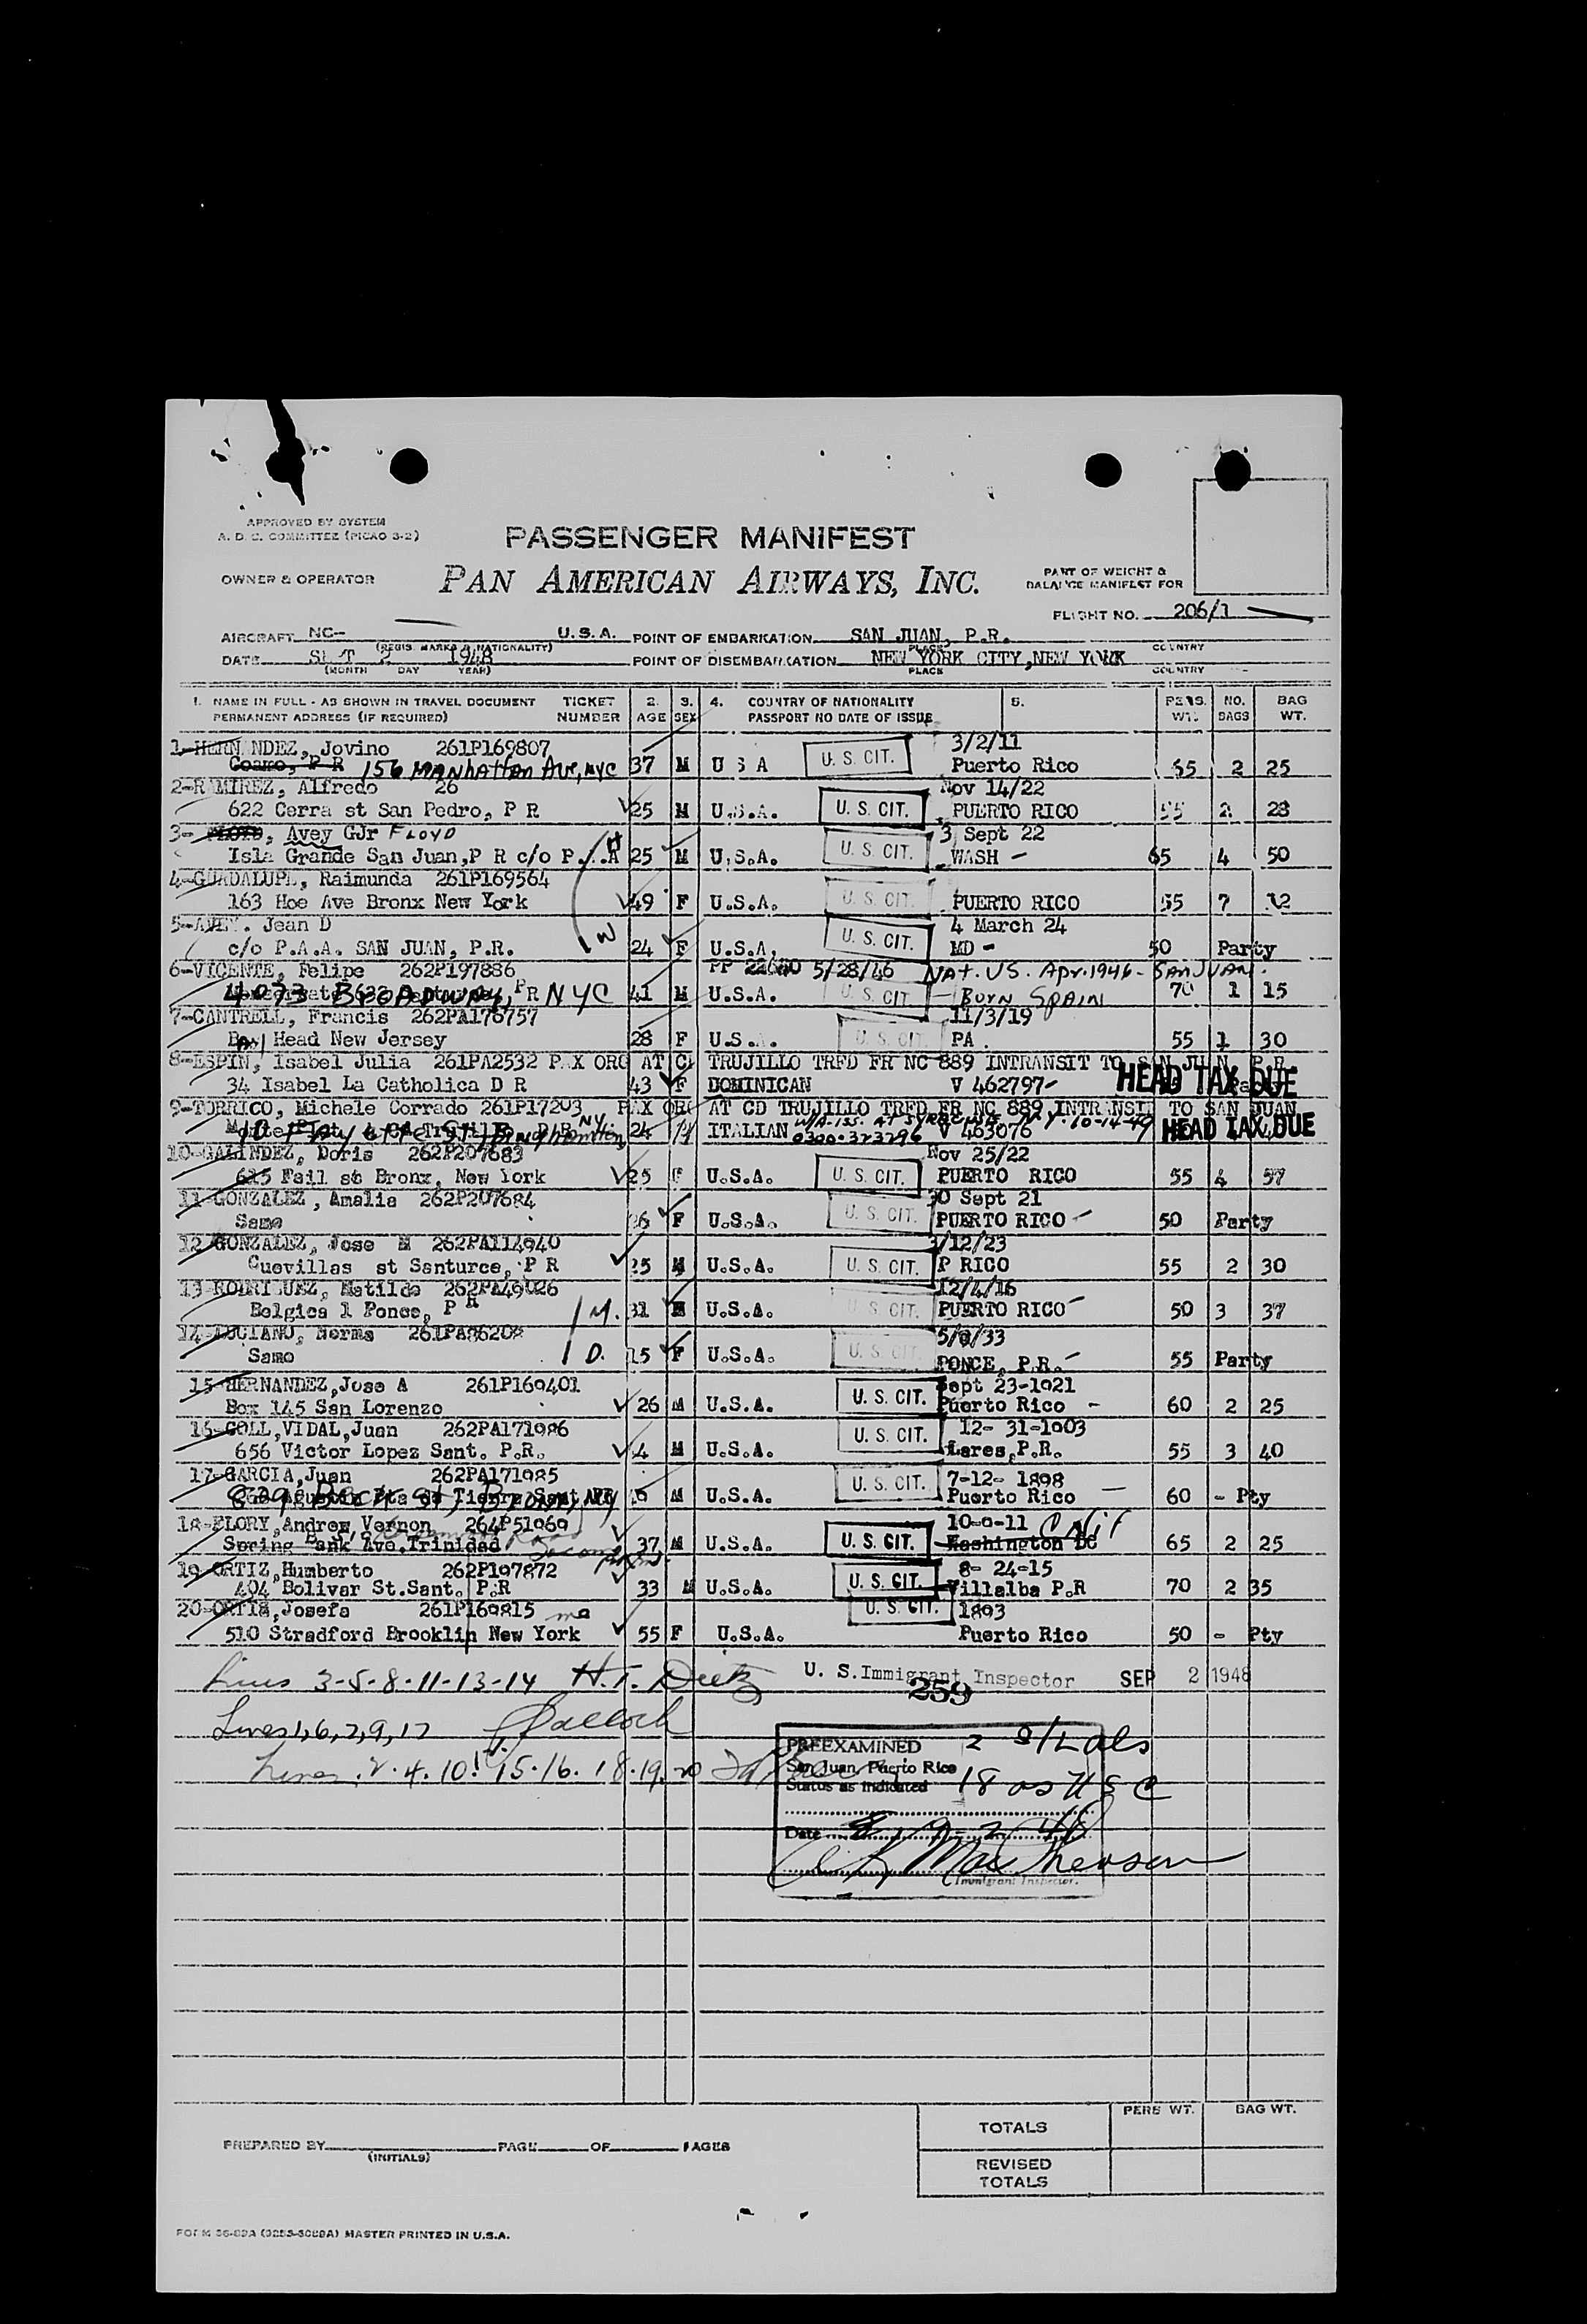 APPROVED BY SYSTEM
A. D. C. COMMITTEE (PICAO 3-2)
PASSENGER MANIFEST
OWNER & OPERATOR
PAN AMERICAN AIRWAYS, INC.
PART OF WEIGHT &
BALANCE MANIFEST FOR
FLIGHT NO. 206/1
AIRCRAFT NC- U.S.A. POINT OF EMBARKATION SAN JUAN, P.R.
(REGIS. MARKS & NATIONALITY) PLACE COUNTRY
DATE SEPT 2 1948 POINT OF DISEMBARKATION NEW YORK CITY,NEW YORK
(MONTH DAY YEAR) PLACE COUNTRY
1. NAME IN FULL - AS SHOWN IN TRAVEL DOCUMENT TICKET 2. 3. 4. COUNTRY OF NATIONALITY 5. PERS. NO. BAG
PERMANENT ADDRESS (IF REQUIRED) NUMBER AGE SEX PASSPORT NO DATE OF ISSUE WT. BAGS WT.
1-HERNANDEZ, Jovino 261P169807 3/2/11
Coamo, P R 156 MANhattan Ave, NYC 37 M U S A U. S. CIT. Puerto Rico 65 2 25
2-RAMIREZ, Alfredo 26 Nov 14/22
622 Cerra st San Pedro, P R 25 M U.S.A. U. S. CIT. PUERTO RICO 55 2 28
3- , Avey GJr FLOYD 3 Sept 22
Isla Grande San Juan,P R c/o P.A.A 25 M U.S.A. U. S. CIT. WASH - 65 4 50
H
4-GUADALUPE, Raimunda 261P169564
163 Hoe Ave Bronx New York 49 F U.S.A. U. S. CIT. PUERTO RICO 55 7 12
5-AVEY. Jean D 4 March 24
W
c/o P.A.A. SAN JUAN, P.R. 24 F U.S.A. U. S. CIT. MD - 50 Party
6-VICENTE, Felipe 262P197886 PP 5/28/46 NAT. US. Apr. 1946 - SAN JUAN.
4073 BROADWAY, NYC 41 M U.S.A. U. S. CIT. - BORN SPAIN 70 1 15
7-CANTRELL, Francis 262PA176757 11/3/19
Bay Head New Jersey 28 F U.S.A. U. S. CIT. PA. 55 1 30
8-ESPIN, Isabel Julia 261PA2532 PAX ORG AT CD TRUJILLO TRFD FR NC 889 INTRANSIT TO SAN JUAN, P.R.
34 Isabel La Catholica D R 43 F DOMINICAN V 462797- HEAD TAX DUE
9-TORRICO, Michele Corrado 261P17203 PAX ORG AT CD TRUJILLO TRFD FR NC 889 INTRANSIT TO SAN JUAN
24 ITALIAN 0300-323296 V 463076 HEAD TAX DUE
10-GALINDEZ, Doris 262P207683 Nov 25/22
615 Fail st Bronx, New York 25 F U.S.A. U. S. CIT. PUERTO RICO 55 4 57
11-GONZALEZ, Amalia 262P207684 30 Sept 21
Same 26 F U.S.A. U. S. CIT. PUERTO RICO - 50 Party
12-GONZALEZ, Jose M 262PA114940 3/12/23
Cuevillas st Santurce, P R 25 M U.S.A. U. S. CIT. P RICO 55 2 30
13-RODRIGUEZ, Matilde 262PA49026 12/4/16
Belgica 1 Ponce, P R M. 31 U.S.A. U. S. CIT. PUERTO RICO - 50 3 37
14-LUCIANO, Norma 261PA86208 5/9/33
Same D. 15 F U.S.A. U. S. CIT. PONCE, P.R. - 55 Party
15-HERNANDEZ,Jose A 261P169401 Sept 23-1921
Box 145 San Lorenzo 26 M U.S.A. U. S. CIT. Puerto Rico - 60 2 25
16-COLL,VIDAL,Juan 262PA171986 12- 31-1903
656 Victor Lopez Sant. P.R. 4 M U.S.A. U. S. CIT. Lares,P.R. 55 3 40
17-GARCIA,Juan 262PA171985 7-12- 1898
829 Beck st, Bronx, NY M U.S.A. U. S. CIT. Puerto Rico - 60 - Pty
18-FLORY,Andrew Vernon 264P51969 10-9-11
Spring Bank Ave.Trinidad 37 M U.S.A. U. S. CIT. Washington DC 65 2 25
19-ORTIZ,Humberto 262P197872 8- 24-15
404 Bolivar St.Sant. P.R 33 M U.S.A. U. S. CIT. Villalba P.R 70 2 35
20-ORTIZ,Josefa 261P169815 1893
510 Stradford Brooklin New York 55 F U.S.A. U. S. CIT. Puerto Rico 50 - Pty
Lines 3-5-8-11-13-14 H.T. U. S. Immigrant Inspector SEP 2 1948
259
Lines 1,6,7,9,17
Lines 2.4.10. 15.16. 18.19.20
PREEXAMINED 2
San Juan, Puerto Rico
Status as indicated 18 as USC
Date 9-2-48
Immigrant Inspector.
TOTALS PERS WT. BAG WT.
PREPARED BY PAGE OF PAGES
(INITIALS)
REVISED
TOTALS
MASTER PRINTED IN U.S.A.